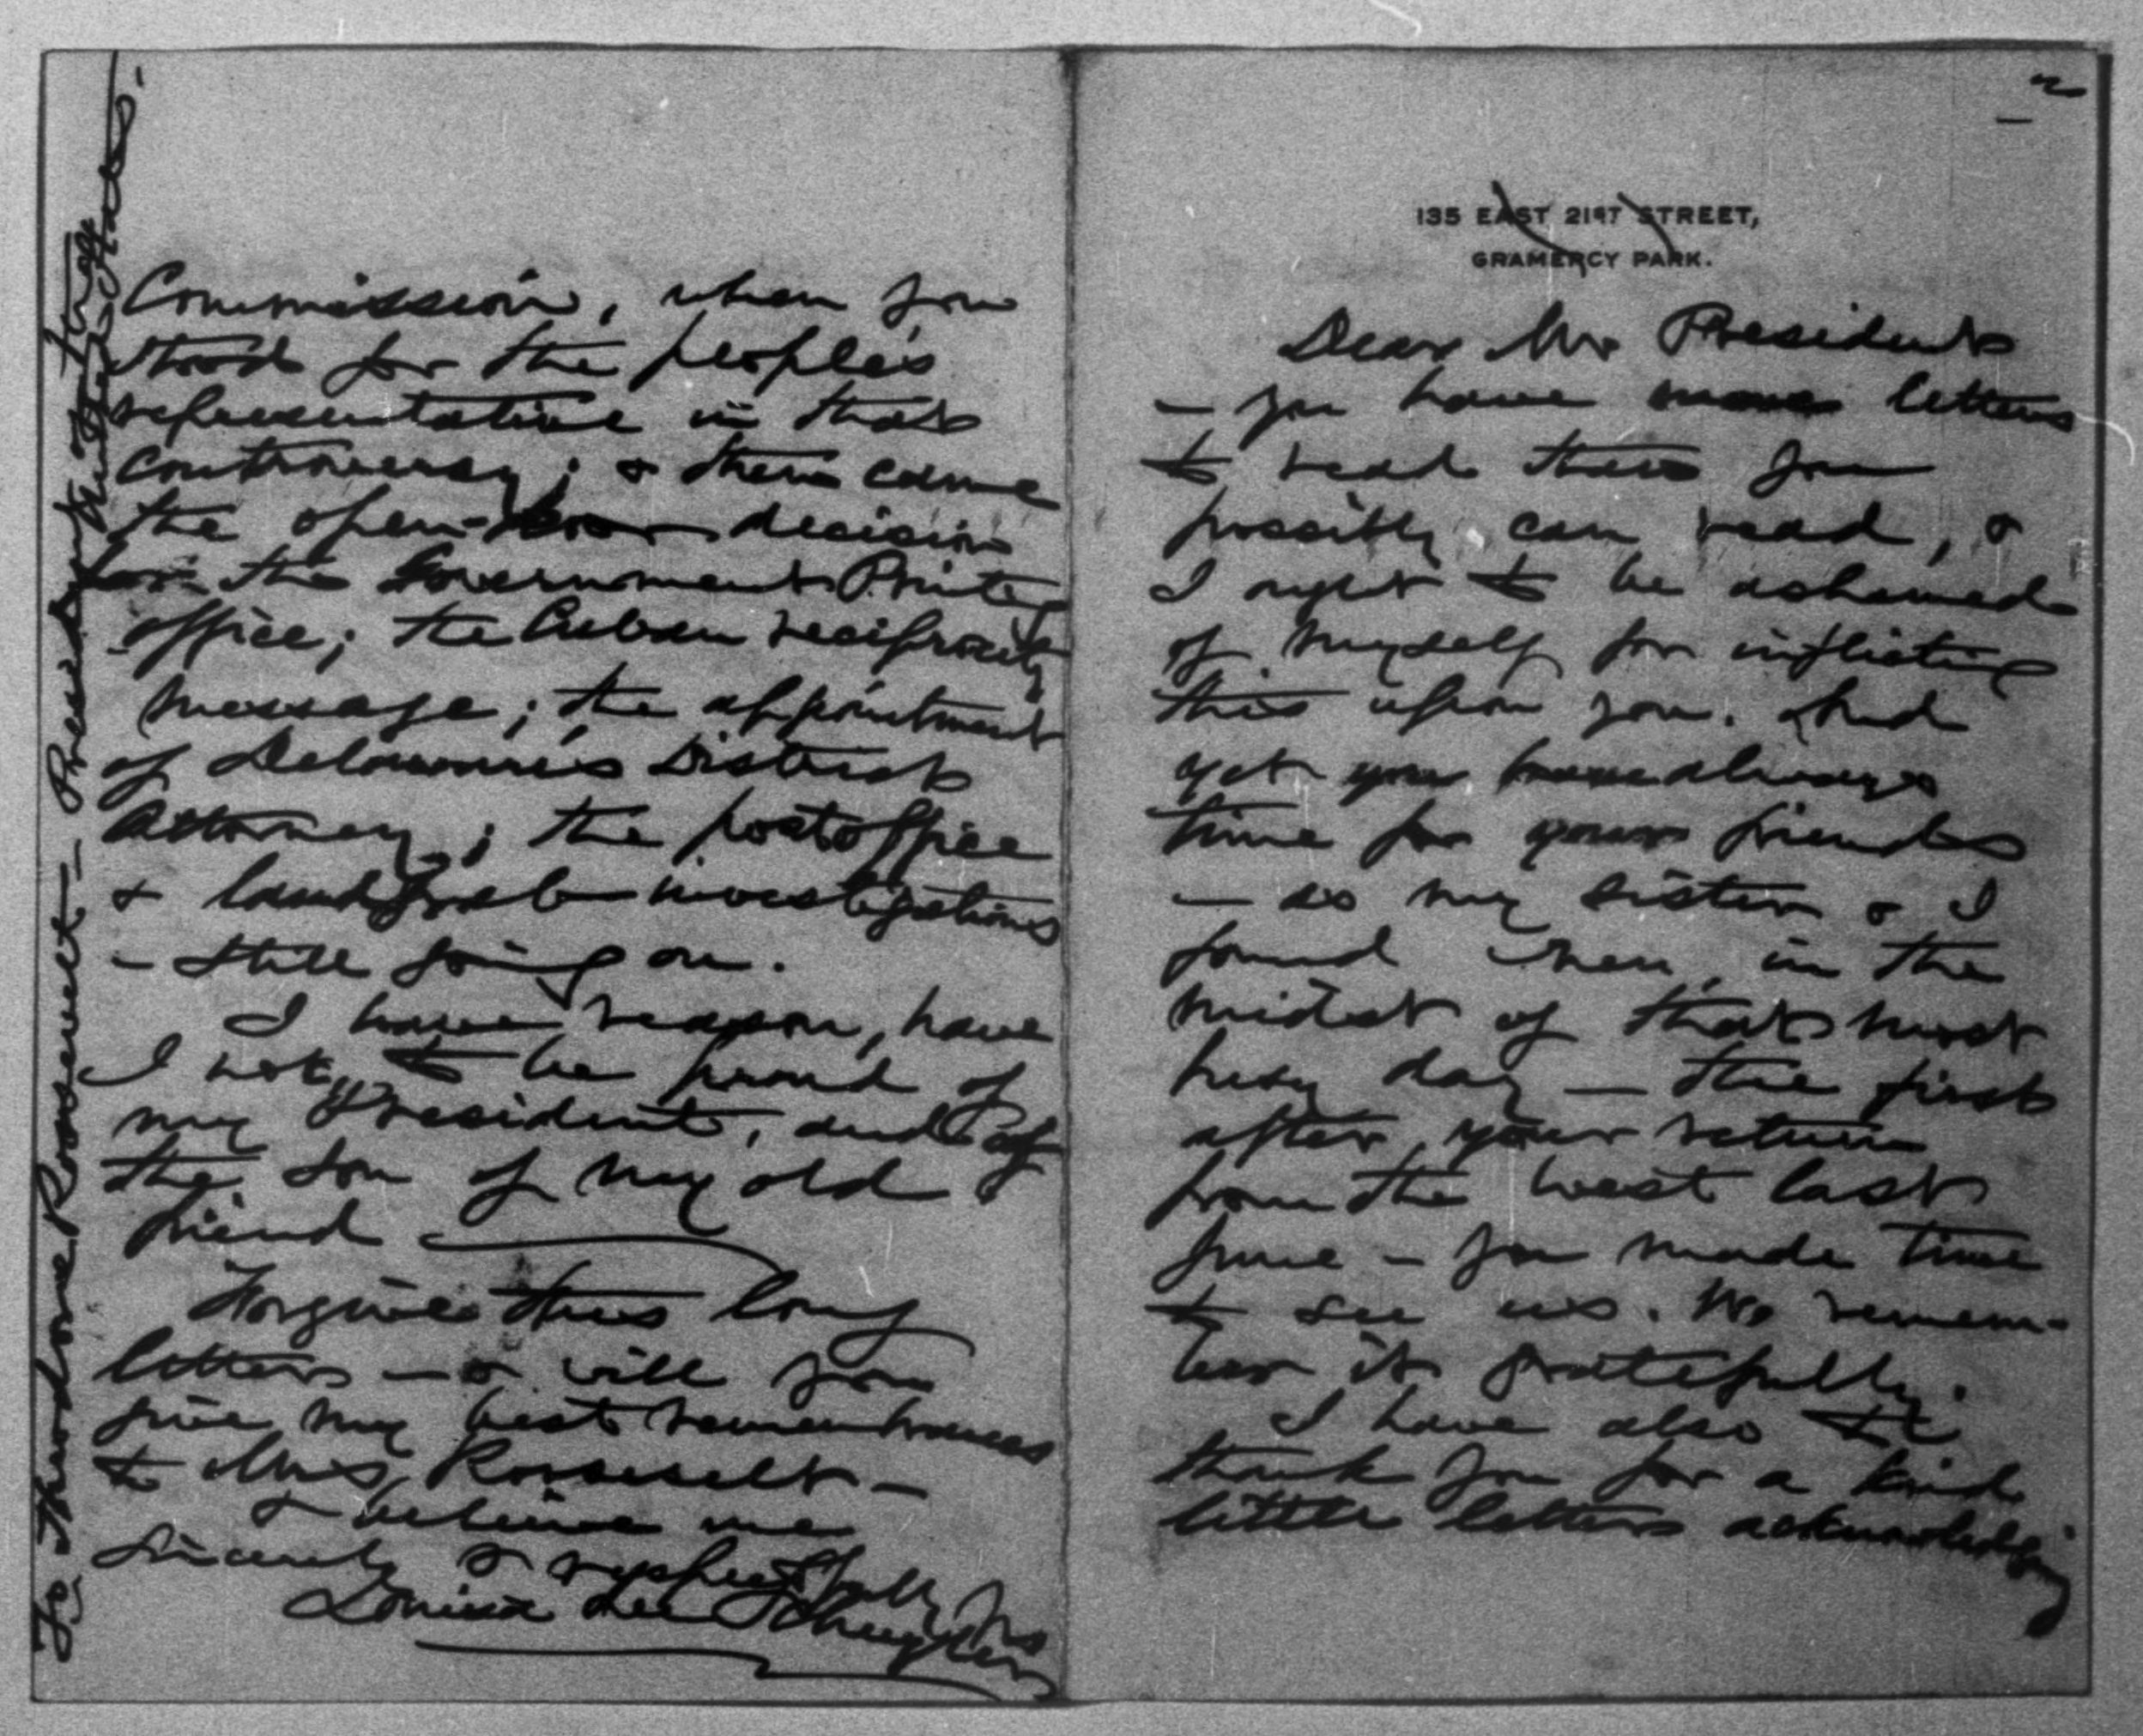 Commission, when you
stood for the people's
representative in that
controversy; & then came
the open-door decision
for the Government Printing
office; the Cuban reciprocity
message; the appointment
of Delaware's District
Attorney; the postoffice
& land grab investigations
- still going on.
I have reason, have
I not, to be proud of
my President, and of
the son of my old
friend
Forgive this long
letter - & will you
give my best remembrances
to Mrs Roosevelt -
& believe me
Sincerely & respectfully yrs
Louisa Lee Schuyler
To Theodore Roosevelt - President of the
United States.
2
135 EAST 21ST STREET,
GRAMERCY PARK.
Dear Mr President
- you have more letters
to read than you
possibly can read, &
I ought to be ashamed
of myself for inflicting
this upon you. And
yet you have always
time for your friends
- as my sister & I
found when, in the
midst of that most
busy day - the first
after your return
from the West last
June - you made time
to see us. We remem-
ber it gratefully.
I have also to
thank you for a kind
little letter acknowledging